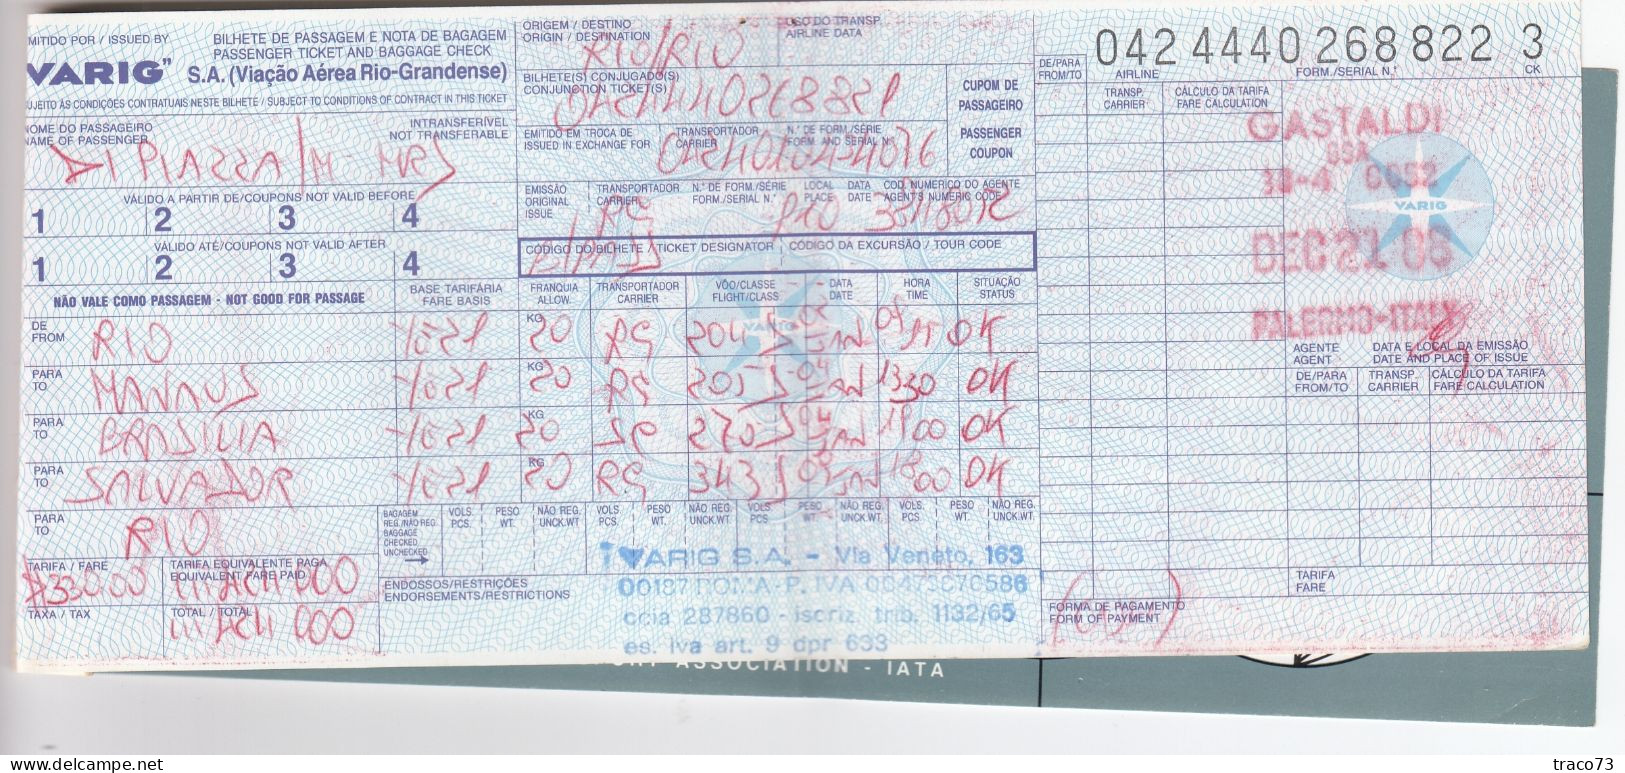 EMITIDO POR / ISSUED BY
VARIG"
BILHETE DE PASSAGEM E NOTA DE BAGAGEM
PASSENGER TICKET AND BAGGAGE CHECK
S.A. (Viação Aérea Rio-Grandense)
SUJEITO ÀS CONDIÇÕES CONTRATUAIS NESTE BILHETE / SUBJECT TO CONDITIONS OF CONTRACT IN THIS TICKET
NOME DO PASSAGEIRO
NAME OF PASSENGER
INTRANSFERÍVEL
NOT TRANSFERABLE
DI PIAZZA / M- MRS
VÁLIDO A PARTIR DE/COUPONS NOT VALID BEFORE
1 2 3 4
VÁLIDO ATÉ/COUPONS NOT VALID AFTER
1 2 3 4
NÃO VALE COMO PASSAGEM - NOT GOOD FOR PASSAGE
ORIGEM / DESTINO
ORIGIN / DESTINATION
RIO/RIO
USO DO TRANSP.
AIRLINE DATA
BILHETE(S) CONJUGADO(S)
CONJUNCTION TICKET(S)
CUPOM DE
PASSAGEIRO
PASSENGER
COUPON
EMITIDO EM TROCA DE
ISSUED IN EXCHANGE FOR
TRANSPORTADOR
CARRIER
N.º DE FORM./SÉRIE
FORM AND SERIAL N.º
EMISSÃO
ORIGINAL
ISSUE
TRANSPORTADOR
CARRIER
N.º DE FORM./SÉRIE
FORM./SERIAL N.º
LOCAL
PLACE
DATA
DATE
COD. NUMERICO DO AGENTE
AGENT'S NUMERIC CODE
RG
RIO
CÓDIGO DO BILHETE / TICKET DESIGNATOR
CÓDIGO DA EXCURSÃO / TOUR CODE
BASE TARIFÁRIA
FARE BASIS
FRANQUIA
ALLOW.
TRANSPORTADOR
CARRIER
VÔO/CLASSE
FLIGHT/CLASS
DATA
DATE
HORA
TIME
SITUAÇÃO
STATUS
DE
FROM
RIO YE21 KG 20 RG 204 JAN OK
PARA
TO
MANAUS YE21 KG 20 RG 205 04 JAN 1330 OK
PARA
TO
BRASILIA YE21 KG 20 SC 270 04 JAN 1900 OK
PARA
TO
SALVADOR YE21 KG 20 RG 343 JAN 1800 OK
PARA
TO
RIO
BAGAGEM
REG./NÃO REG.
BAGGAGE
CHECKED
UNCHECKED
VOLS.
PCS.
PESO
WT.
NÃO REG.
UNCK.WT
VOLS.
PCS.
PESO
WT.
NÃO REG.
UNCK.WT
VOLS.
PCS.
PESO
WT.
NÃO REG.
UNCK.WT
VOLS.
PCS.
PESO
WT.
NÃO REG.
UNCK.WT.
TARIFA / FARE
$330.00
TARIFA EQUIVALENTE PAGA
EQUIVALENT FARE PAID
000
TAXA / TAX
TOTAL / TOTAL
000
ENDOSSOS/RESTRIÇÕES
ENDORSEMENTS/RESTRICTIONS
VARIG S.A. - Via Veneto, 163
ccia 287860 - iscriz. trib. 1132/65
es. iva art. 9 dpr 633
DE/PARA
FROM/TO
042 4440 268 822 3
AIRLINE
FORM./SERIAL N.º
CK
TRANSP.
CARRIER
CÁLCULO DA TARIFA
FARE CALCULATION
GASTALDI
GSA
VARIG
PALERMO-ITALY
AGENTE
AGENT
DATA E LOCAL DA EMISSÃO
DATE AND PLACE OF ISSUE
DE/PARA
FROM/TO
TRANSP.
CARRIER
CÁLCULO DA TARIFA
FARE CALCULATION
TARIFA
FARE
FORMA DE PAGAMENTO
FORM OF PAYMENT
VARIG
ASSOCIATION - IATA
delcampe.net
traco73